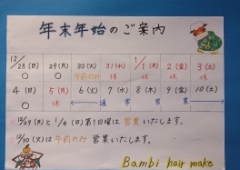 年末年始のご案内
12/28(日) 29(月) 30(火) 31(水) 1/1(木) 2(金) 3(土)
○ ○ 午前のみ 休 休 休 休
4(日) 5(月) 6(火) 7(水) 8(木) 9(金) 10(土)
○ 休 ← 通 常 営 業 →
12/29(月)と1/4(日)第1日曜は営業いたします。
12/30(火)は午前のみ営業いたします。
Bambi hair make